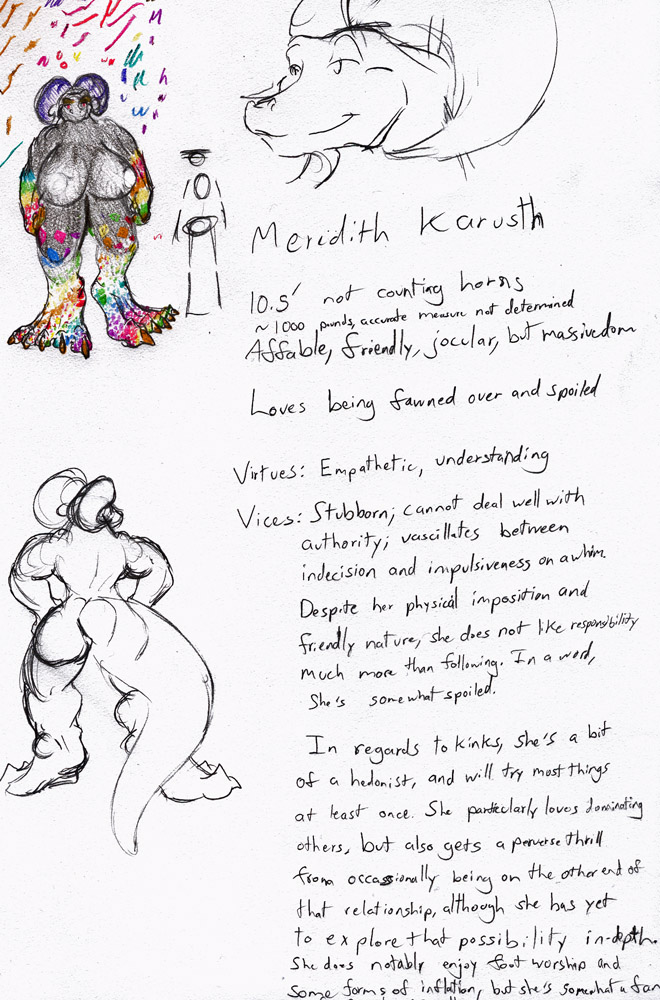 Meridith Karusth
10.5' not counting horns
~1000 pounds, accurate measure not determined
Affable, friendly, jocular, but massivedom
Loves being fawned over and spoiled
Virtues: Empathetic, understanding
Vices: Stubborn; cannot deal well with
authority; vascillates between
indecision and impulsiveness on a whim.
Despite her physical imposition and
friendly nature, she does not like responsibility
much more than following. In a word,
She's somewhat spoiled.
In regards to kinks, she's a bit
of a hedonist, and will try most things
at least once. She particularly loves dominating
others, but also gets a perverse thrill
from occassionally being on the other end of
that relationship, although she has yet
to explore that possibility in-depth.
She does notably enjoy foot worship and
some forms of inflation, but she's somewhat a fan